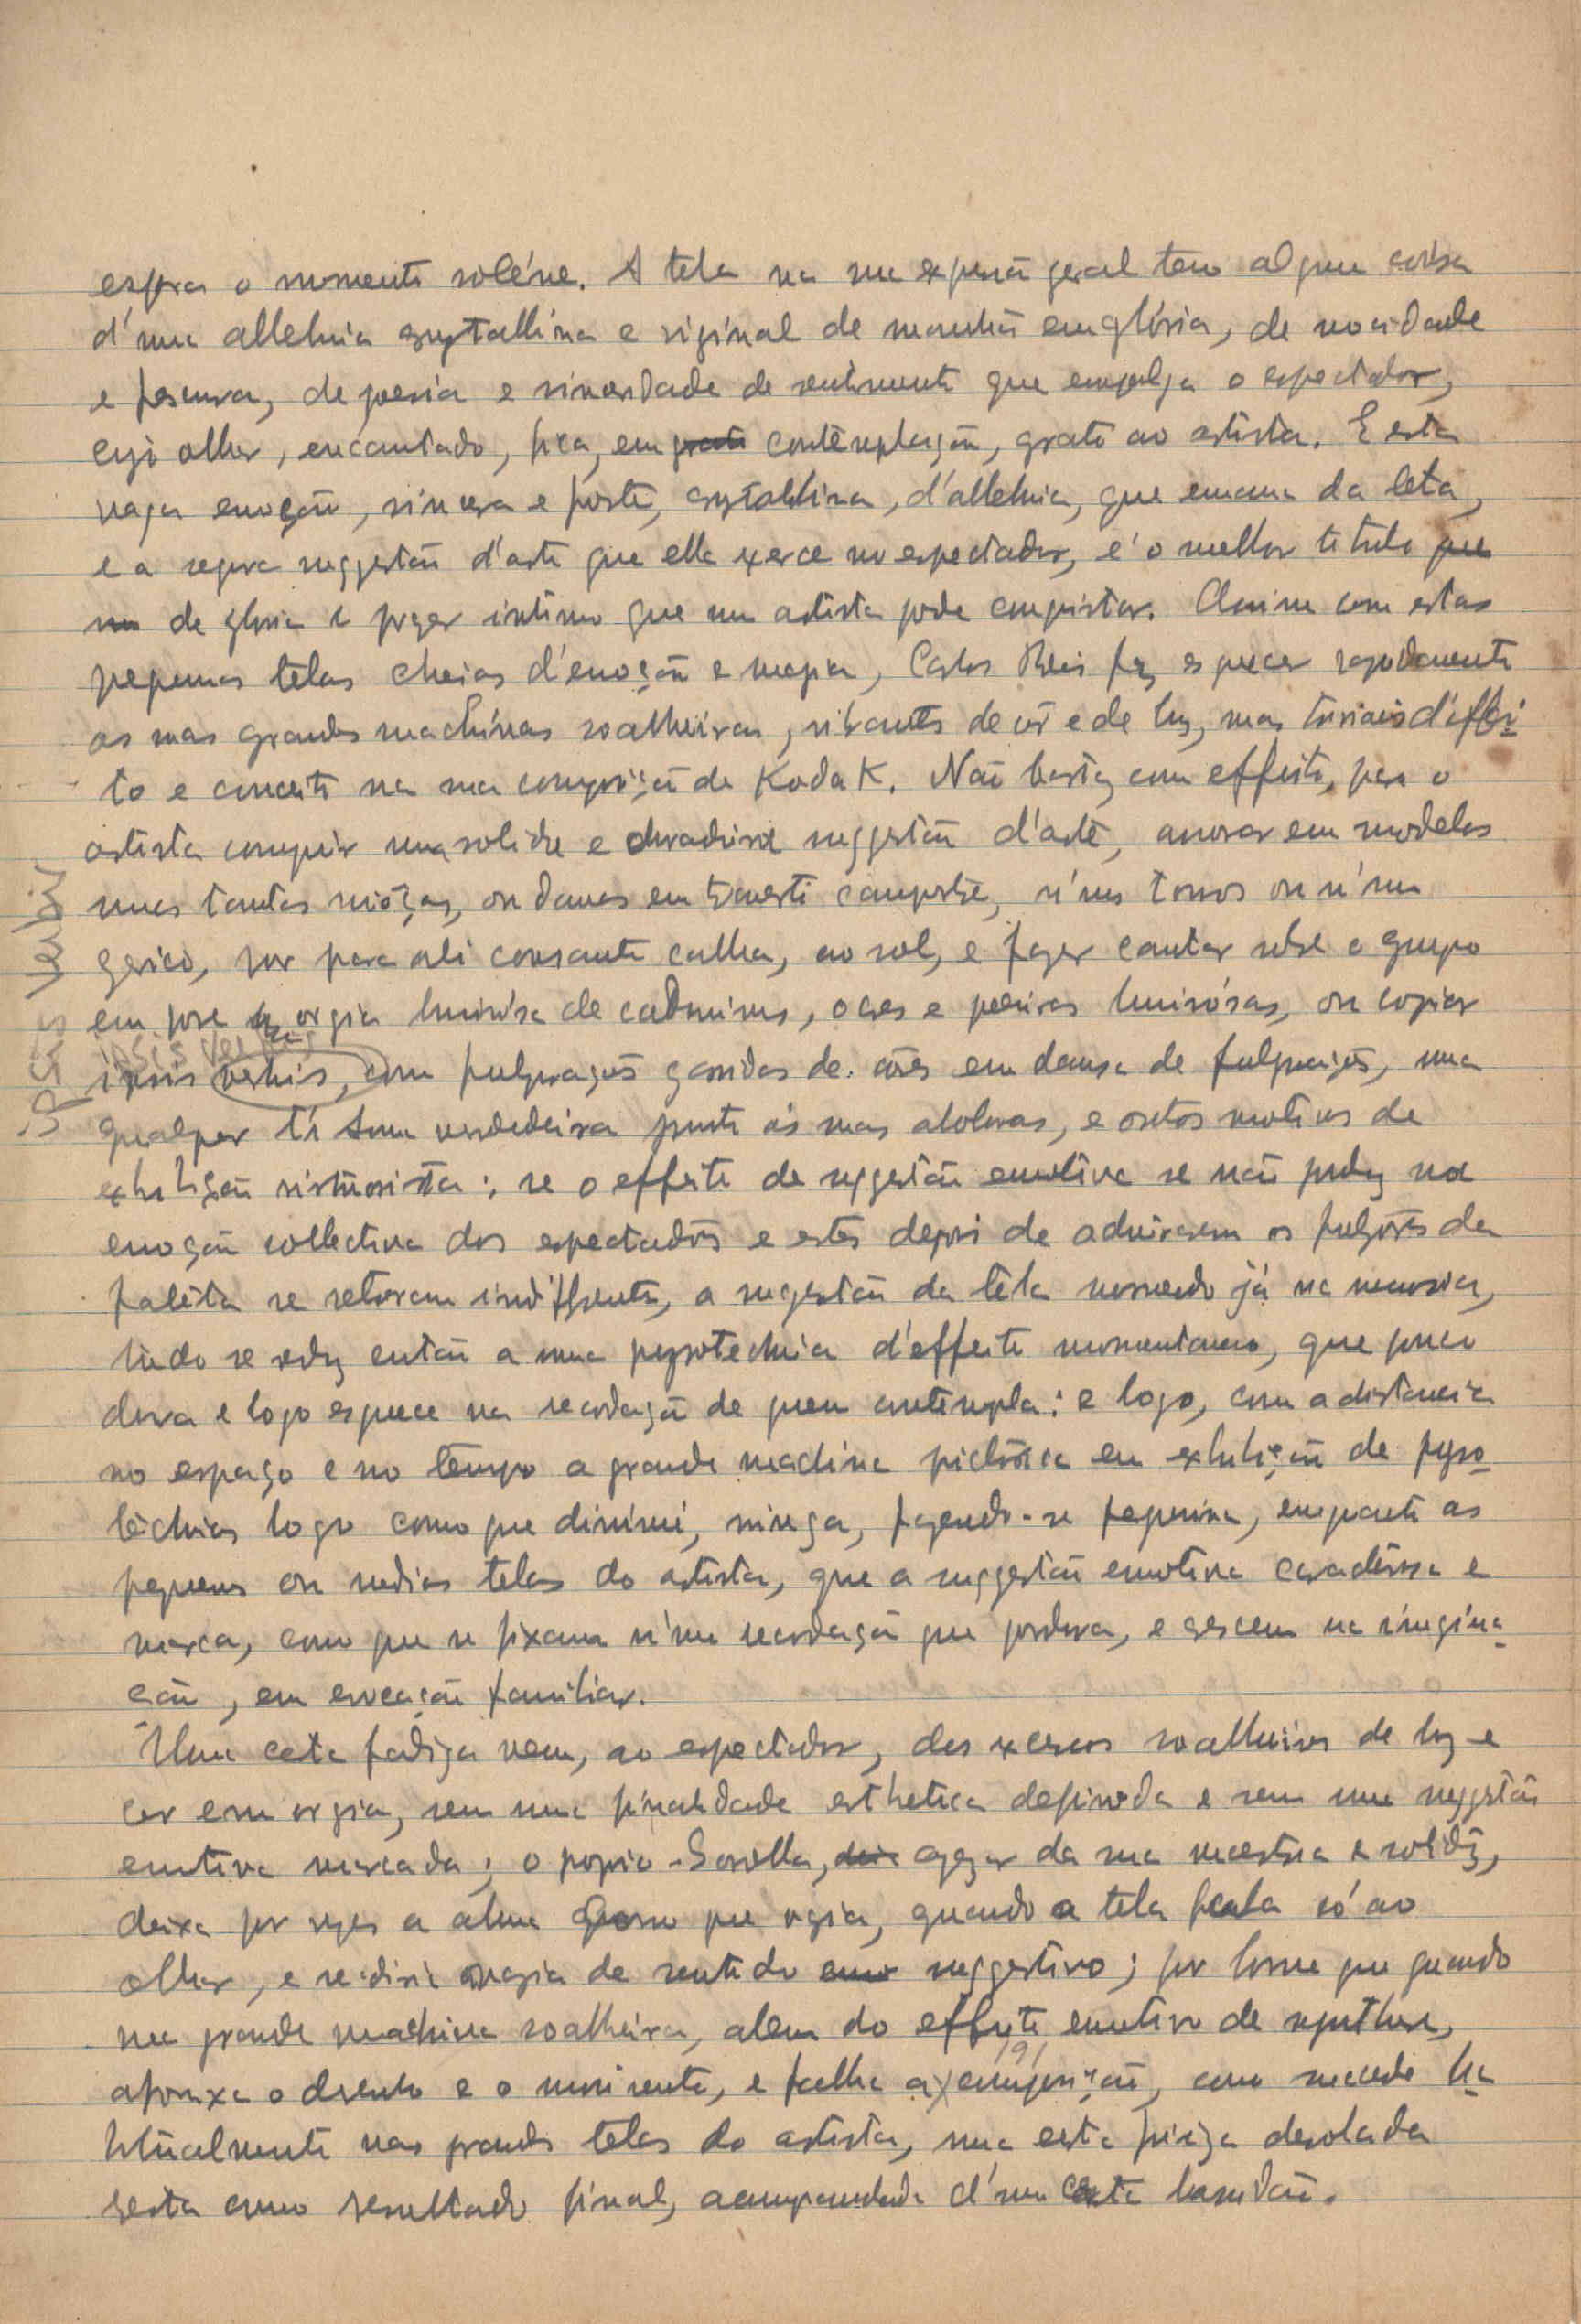 espera o momento soléne. A tela na sua expressão geral tem alguma coisa
d'uma alleluia crystallina e virginal de manhã em glória, de mocidade
e frescura, de poesia e sinceridade de sentimento que empolga o espectador,
cujo olhar, encantado, fica, em grata contemplação, grato ao artista. E esta
vaga emoção, sincera e forte, crystallina, d'alleluia, que emana da tela,
e a segura suggestão d'arte que ella exerce no espectador, é o melhor titulo que
de gloria e prazer intimo que um artista pode conquistar. Assim com estas
pequenas telas cheias d'emoção e magia, Carlos Reis fez esquecer rapidamente
as suas grandes machinas soalheiras, vibrantes de côr e de luz, mas triviais d'effei-
to e conceito na sua composição de Kodak. Não basta, com effeito, para o
artista conseguir uma solida e duradoira suggestão d'arte, arvorar em modelos
umas tantas môças, ou damas em travesti campestre, n'uns torsos ou n'um
gerico, por para ali consoante calha, ao sol, e fazer cantar sobre o grupo
em pose a orgia luminosa de cadmiums, ocres e poeiras luminósas, ou copiar
ipsis verbis
ipsis verbis, com fulgurações garridas de côres em dansa de fulgurações, uma
ipsis verbis
qualquer ti Anna verdadeira junto ás suas aboboras, e outros motivos de
exhibição virtuosista: se o effeito de suggestão emotiva se não produz na
emoção collectiva dos espectadores e estes depois de admirarem os fulgores da
paleta se retiram indifferentes, a sugestão da téla morrendo já na memoria,
tudo se reduz então a uma pyrotechnia d'effeito momentaneo, que pouco
dura e logo esquece na recordação de quem contempla: e logo, com a distancia
no espaço e no tempo a grande machina pictórica em exhibição de pyro-
téchnias logo como que diminui, minga, fazendo-se pequenina, emquanto as
pequenas ou medias telas do artista, que a suggestão emotiva caracterisa e
marca, como que se fixam n'uma recordação que perdura, e crescem na imagina-
ção, em evocação familiar.
Uma certa fadiga vem, ao espectador, dos excessos soalheiros de luz e
cor em orgia, sem uma finalidade esthetica definida e sem uma suggestão
emotiva marcada; o proprio Sorolla, apezar da sua maestria e solidez,
deixa por vezes a alma como que vazia, quando a tela fala só ao
olhar, e se diria vazia de sentido suggestivo; por forma que quando
na grande machina soalheira, alem do effeito emotivo de synthese,
afrouxa o desenho e o movimento, e falha a composição, como succede ha-
bitualmente nas grandes telas do artista, uma certa frieza desolada
resta como resultado final, acompanhada d'uma certa lassidão.